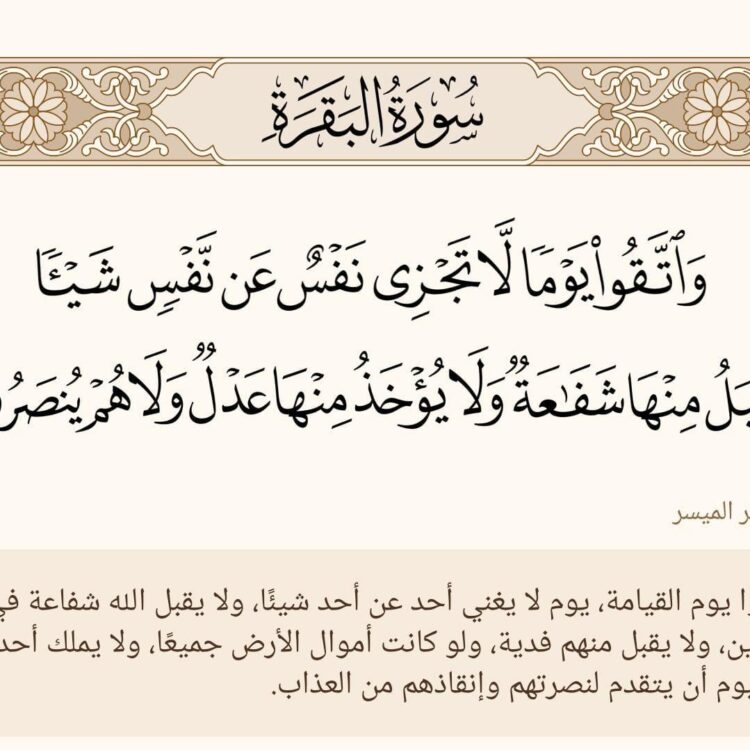 سُورَةُ البَقَرَةِ
وَٱتَّقُوا۟ يَوْمًا لَّا تَجْزِى نَفْسٌ عَن نَّفْسٍ شَيْـًٔا
مِنْهَا شَفَـٰعَةٌ وَلَا يُؤْخَذُ مِنْهَا عَدْلٌ وَلَا هُمْ
الميسر
يوم القيامة، يوم لا يغني أحد عن أحد شيئًا، ولا يقبل الله شفاعة في
ولا يقبل منهم فدية، ولو كانت أموال الأرض جميعًا، ولا يملك أحد
أن يتقدم لنصرتهم وإنقاذهم من العذاب.